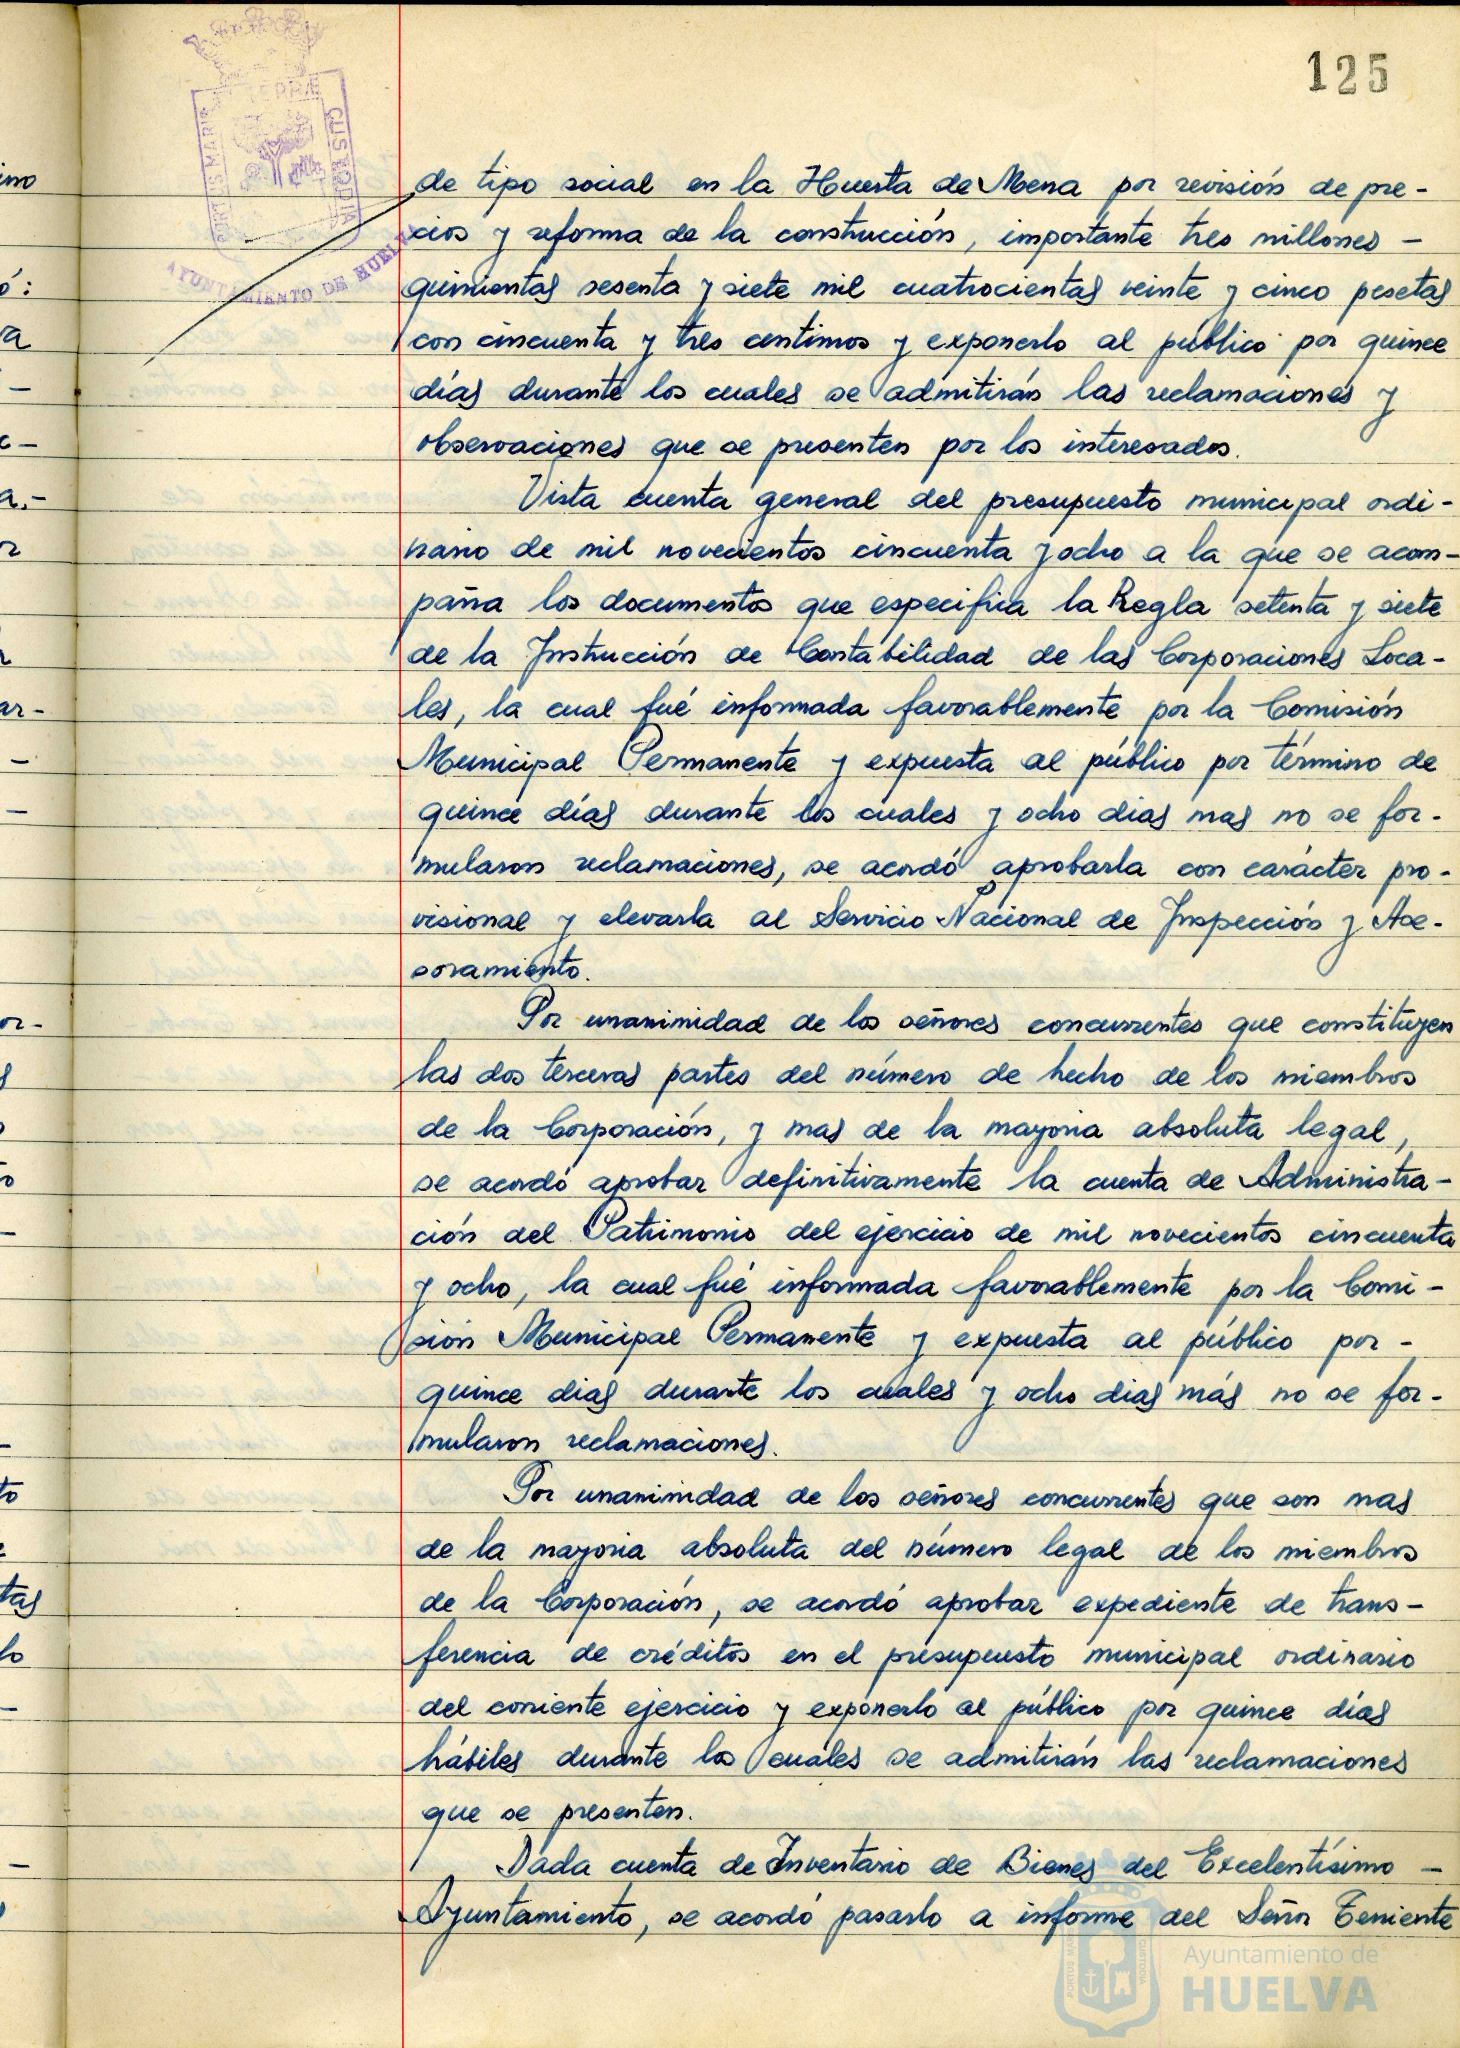 125
TERRÆ
PORTUS MARIS
CUSTODIA
AYUNTAMIENTO DE HUELVA
de tipo social en la Huerta de Mena por revisión de pre-
cios y reforma de la construcción, importante tres millones -
quinientas sesenta y siete mil cuatrocientas veinte y cinco pesetas
con cincuenta y tres centimos y exponerlo al público por quince
días durante los cuales se admitirán las reclamaciones y
observaciones que se presenten por los interesados.
Vista cuenta general del presupuesto municipal ordi-
nario de mil novecientos cincuenta y ocho a la que se acom-
paña los documentos que especifica la Regla setenta y siete
de la Instrucción de Contabilidad de las Corporaciones Loca-
les, la cual fué informada favorablemente por la Comisión
Municipal Permanente y expuesta al público por término de
quince días durante los cuales y ocho dias mas no se for-
mularon reclamaciones, se acordó aprobarla con carácter pro-
visional y elevarla al Servicio Nacional de Inspección y Ase-
soramiento.
Por unanimidad de los señores concurrentes que constituyen
las dos terceras partes del número de hecho de los miembros
de la Corporación, y mas de la mayoria absoluta legal,
se acordó aprobar definitivamente la cuenta de Administra-
ción del Patrimonio del ejercicio de mil novecientos cincuenta
y ocho, la cual fué informada favorablemente por la Comi-
sión Municipal Permanente y expuesta al público por -
quince dias durante los cuales y ocho dias más no se for-
mularon reclamaciones.
Por unanimidad de los señores concurrentes que son mas
de la mayoria absoluta del número legal de los miembros
de la Corporación, se acordó aprobar expediente de trans-
ferencia de créditos en el presupuesto municipal ordinario
del corriente ejercicio y exponerlo al público por quince días
hábiles durante los cuales se admitirán las reclamaciones
que se presenten.
Dada cuenta de Inventario de Bienes del Excelentísimo -
Ayuntamiento, se acordó pasarlo a informe del Señor Teniente
Ayuntamiento de
HUELVA